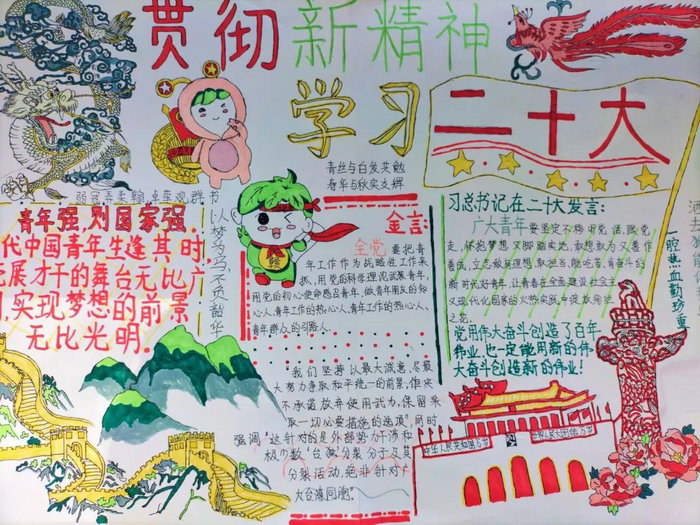 贯彻新精神
学习
二十大
青丝与白发共勉
春华与秋实支辉
弱冠弄柔翰,卓荦观群书
以梦为马不负韶华
青年强,则国家强。
代中国青年生逢其时,
展才干的舞台无比广
实现梦想的前景
无比光明。
金言:
全党 要把青
年工作作为战略性工作来
抓,用党的科学理论武装青年,
用党的初心使命感召青年,做青年朋友的知
心人、青年工作的热心人、青年工作的热心人、
青年群众的引路人。
"我们坚持以最大诚意、尽最
大努力争取和平统一的前景,但决
不承诺放弃使用武力,保留采
取一切必要措施的选项",同时
强调"这针对的是外部势力干涉和
极少数"台独"分裂分子及其
分裂活动,绝非针对广
大台湾同胞。"
习总书记在二十大发言:
广大青年要坚定不移听党话、跟党
走,怀抱梦想又脚踏实地,敢想敢为又善作
善成,立志做有理想、敢担当、能吃苦、肯奋斗的
新时代好青年,让青春在全面建设社会主
义现代化国家的火热实践中绽放绚丽
之花。
党用伟大奋斗创造了百年
伟业,也一定能用新的伟
大奋斗创造新的伟业!
一腔热血勤珍重
中华人民共和国万岁
世界人民大团结万岁
赣